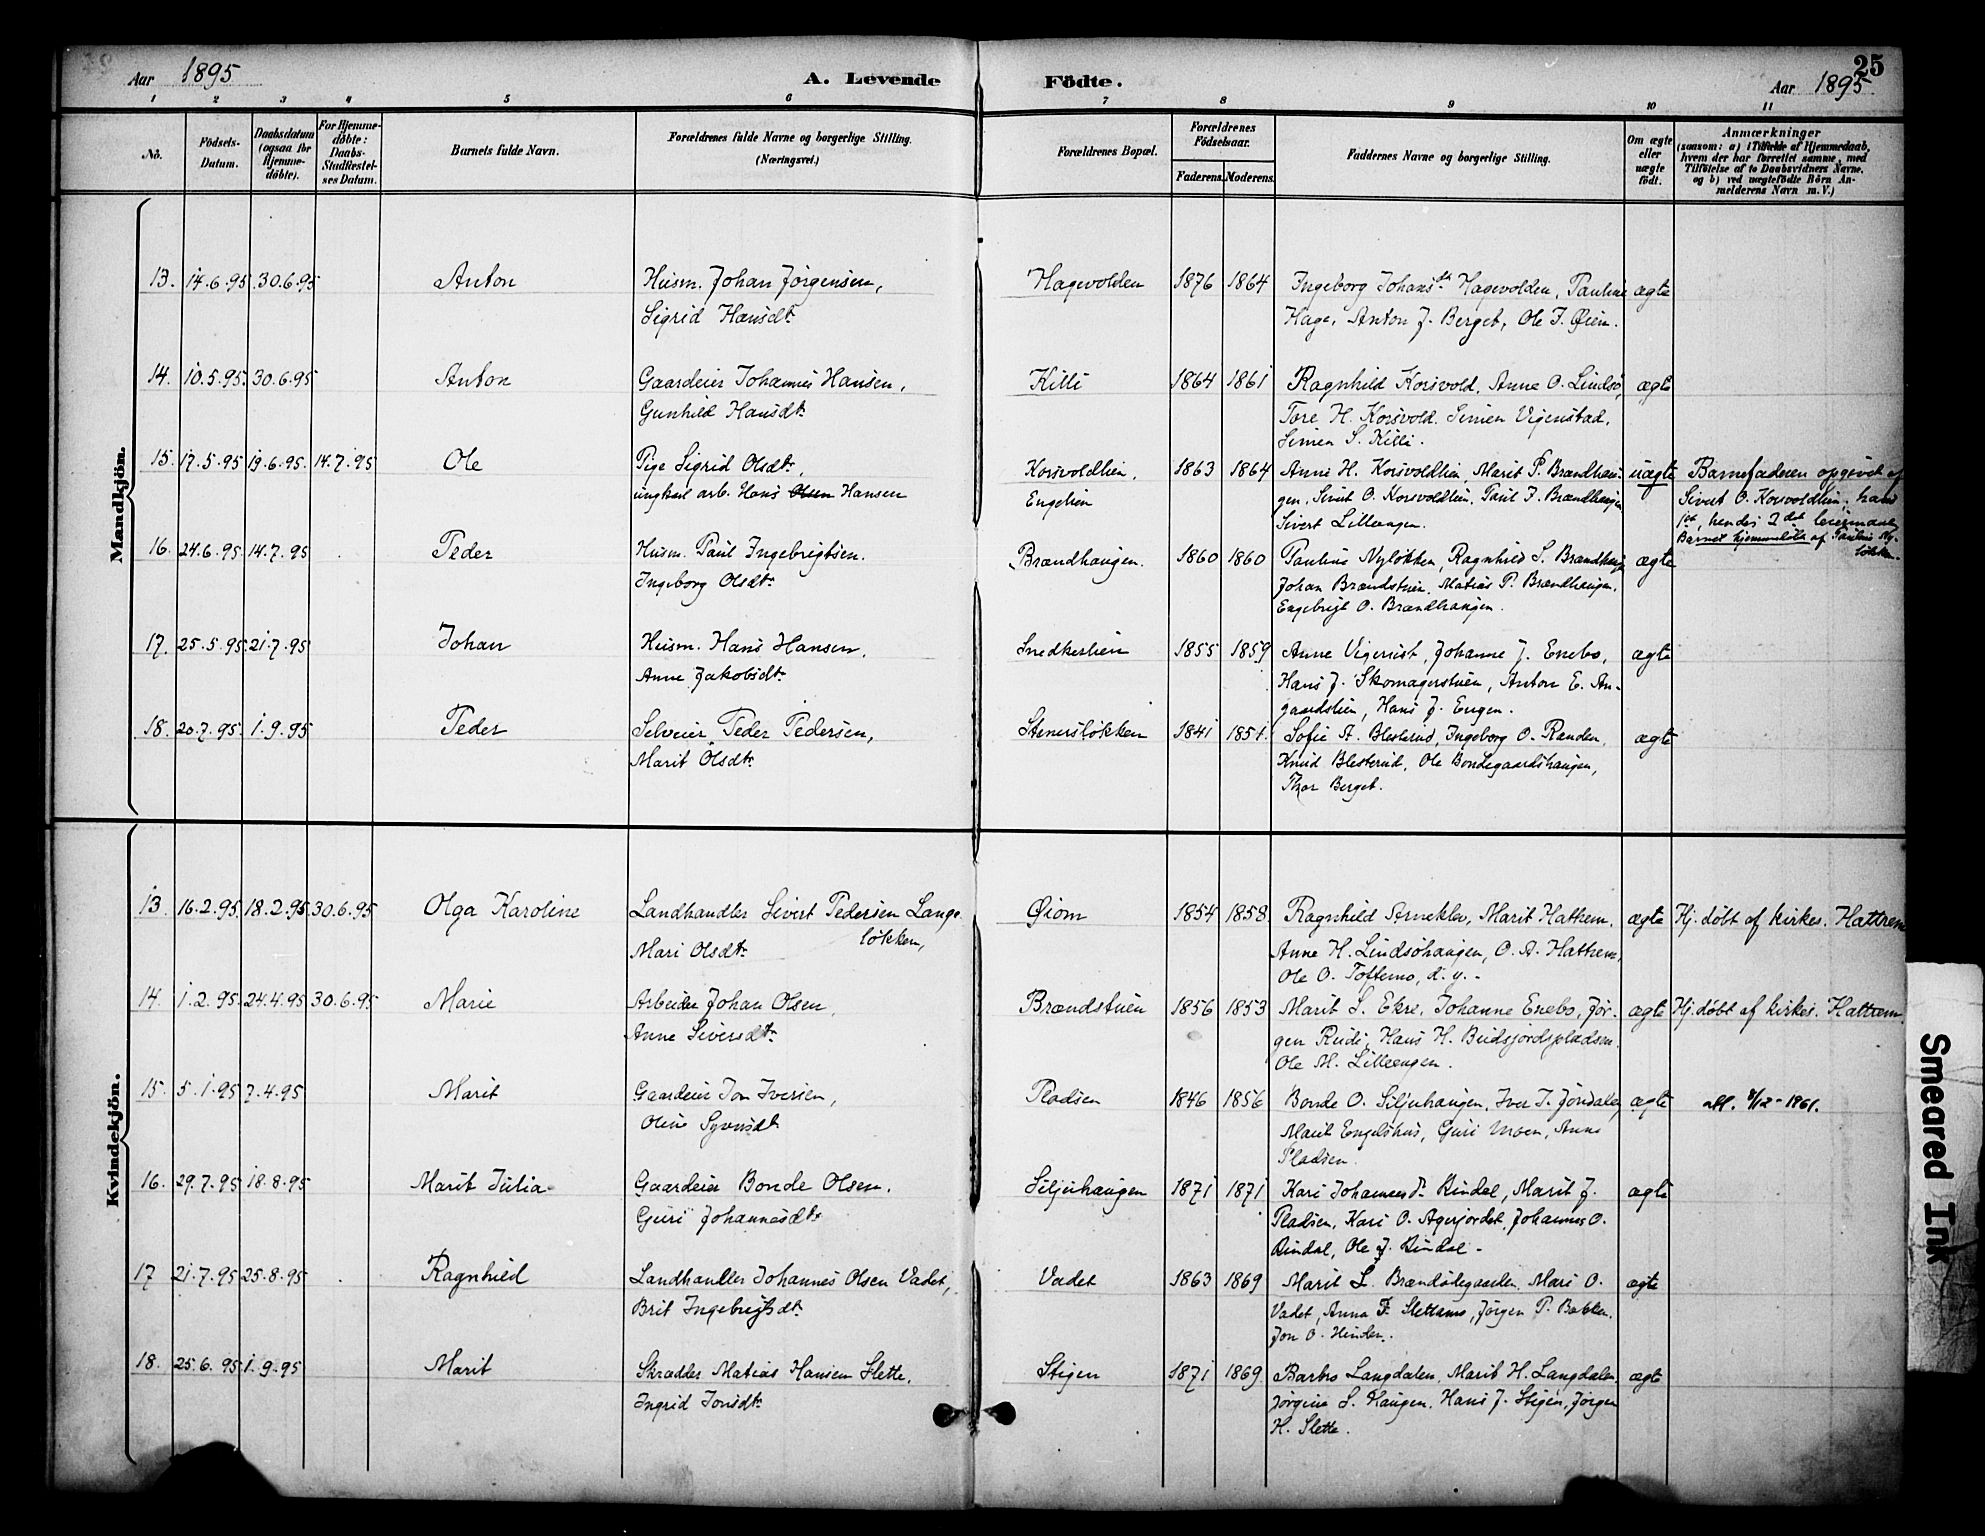 Aar 1895 A. Levende Födte. Aar 1895 25
1 2 3 4 5 6 7 8 9 10 11
No. Födsels-Datum. Daabsdatum (ogsaa for Hjemme-döbte). For Hjemme-döbte: Daabs-Stadfestel-ses Datum. Barnets fulde Navn. Forældrenes fulde Navne og borgerlige Stilling. (Næringsvei.) Forældrenes Bopæl. Forældrenes Födselsaar. Faderens. Moderens. Faddernes Navne og borgerlige Stilling. Om ægte eller uægte födt. Anmærkninger (saasom: a) i Tilfælde af Hjemmedaab, hvem der har forrettet samme, med Tilföielse af to Daabsvidners Navne, og b) ved uægtefödte Börn An-melderens Navn m. V.)
Mandkjön.
13. 14.6.95 30.6.95 Anton Husm. Johan Jørgensen, Hagevolden 1876 1864 Ingeborg Johans dt Hagevolden, Pauline ægte
Sigrid Hansdt. Hage, Anton J. Berget, Ole J. Øien.
14. 10.5.95. 30.6.95 Anton Gaardeier Johannes Hansen, Killi 1864 1861 Ragnhild Korsvold, Anne O. Lindsø, ægte
Gunhild Hansdt. Tore H. Korsvold. Simen Vigenstad,
Simen S. Killi.
15. 17.5.95 19.6.95. 14.7.95 Ole Pige Sigrid Olsdt., Korsvoldlien, 1863 1864 Anne H. Korsvoldlien, Marit P. Brændhau- uægte Barnefaderen opgivet af
ungkarl arb. Hans Olsen Hansen Engelien gen, Sivert O. Korsvoldlien, Paul J. Brændhaugen Sivert O. Korsvoldlien; hans
Sivert Lilleengen. 1ste, hendes 2det leiermaal
Barnet hjemmedøbt af Pauline Ny-
løkken.
16. 24.6.95. 14.7.95 Peder Husm. Paul Ingebrigtsen. Brændhaugen. 1860 1860 Pauline Nyløkken, Ragnhild S. Brændhaugen ægte
Ingeborg Olsdt. Johan Brændstuen, Matias P. Brændhaugen.
Engebrigt O. Brændhaugen.
17. 25.5.95. 21.7.95 Johan Husm. Hans Hansen, Snedkerlien 1855 1859 Anne Vigerust, Johanne J. Enebo, ægte
Anne Jakobsdt. Hans J. Skomagerstuen, Anton E. An-
gaardslien, Hans J. Engen.
18. 20.7.95. 1.9.95 Peder Selveier Peder Pedersen, Stenersløkken 1841 1851. Sofie A. Blesterud, Ingeborg O. Randen, ægte
Marit Olsdt. Knud Blesterud, Ole Bondegaardshaugen,
Thor Berget.
Kvindekjön.
13. 16.2.95. 18.2.95 30.6.95 Olga Karoline Landhandler Sivert Pedersen Lange- Øiom 1854 1858 Ragnhild Arneklev, Marit Hattrem. ægte Hj. døbt af kirkes. Hattrem
løkken,
Mari Olsdt. Anne H. Lindsøhaugen, O. A. Hattrem,
Ole O. Toftemo, d. y.
14. 1.2.95. 24.4.95 30.6.95 Marie Arbeider Johan Olsen, Brændstuen 1856 1853 Marit S. Ekre, Johanne Enebo, Jør- ægte Hj. døbt af kirkes. Hattrem.
Anne Siversdt. gen Rudi, Hans H. Budsjordspladsen.
Ole M. Lilleengen.
15. 5.1.95 7.4.95 Marit Gaardeier Jon Iversen, Pladsen 1846 1856 Bonde O. Siljuhaugen, Iver J. Jøndalen ægte att. 8/12-1961.
Oline Syversdt. Marit Engelshus, Guri Moen, Anne
Pladsen.
16. 29.7.95 18.8.95 Marit Julia Gaardeier Bonde Olsen. Siljuhaugen 1871 1871 Kari Johannesdt. Rindal, Marit J. ægte
Guri Johannesdt. Pladsen, Kari O. Agerjordet, Johannes O.
Rindal, Ole J. Rindal.
17 21.7.95 25.8.95 Ragnhild Landhandler Johannes Olsen Vadet, Vadet 1863 1869 Marit L. Brændølegaarden, Mari O. ægte
Brit Ingebrigtsdt. Vadet, Anna F. Slettamo, Jørgen P. Bakken.
Jon O. Hinden.
18. 25.6.95 1.9.95 Marit Skrædder Matias Hansen Slette, Stigen 1871 1869. Barbro Langdalen, Marit H. Langdalen, ægte
Ingrid Jonsdt. Jørgine S. Haugen, Hans J. Stigen, Jørgen
H. Slette.
Smeared Ink